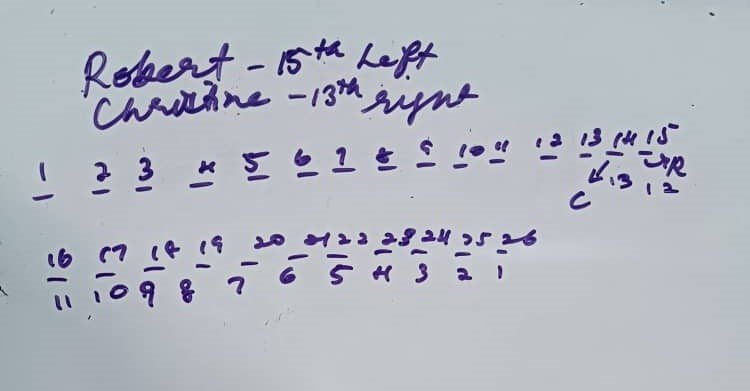 Robert - 15th Left
Christine - 13th right
1 2 3 4 5 6 7 8 9 10 11 12 13 14 15
C 13 12 R
16 17 18 19 20 21 22 23 24 25 26
11 10 9 8 7 6 5 4 3 2 1